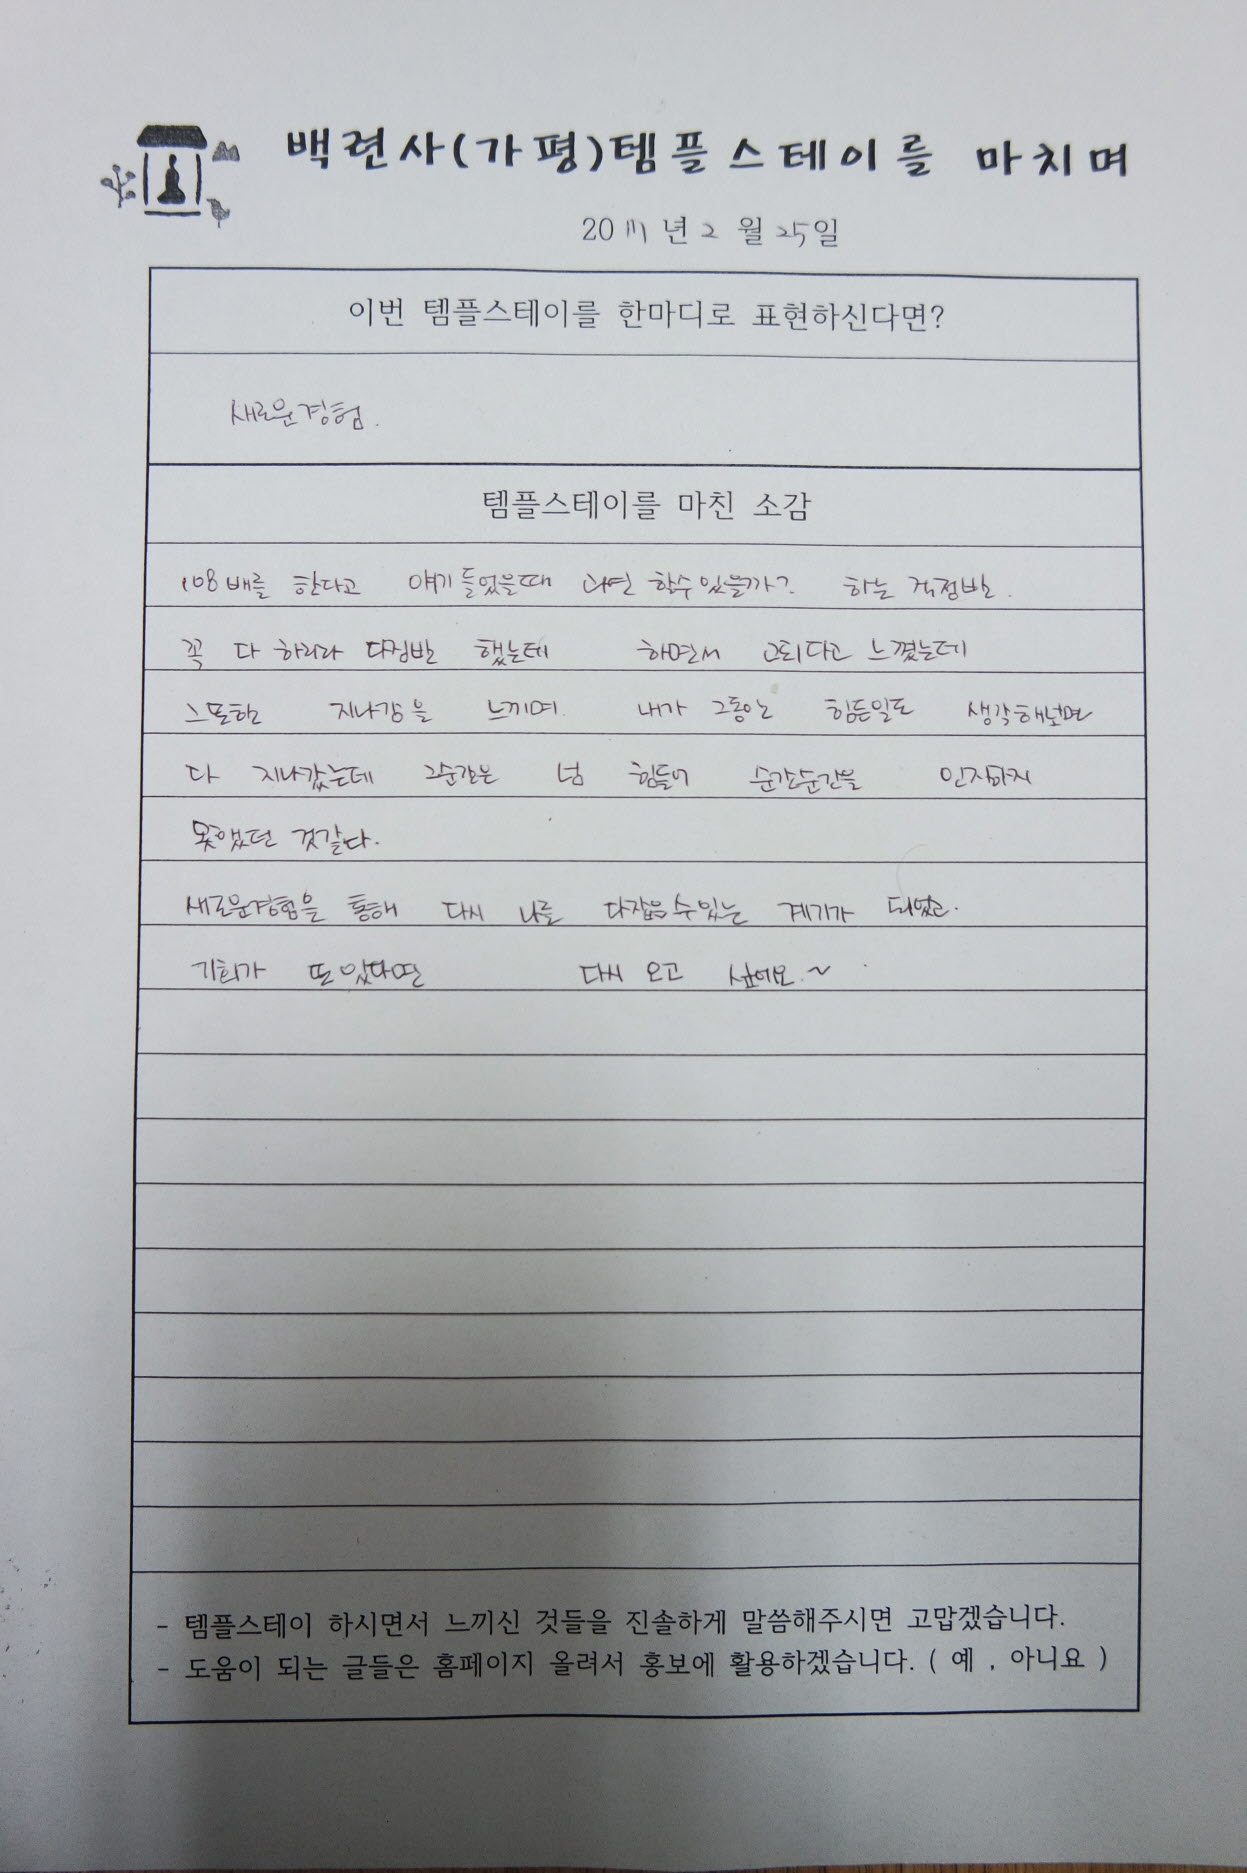 백련사(가평)템플스테이를 마치며
20 년 2 월 25일
이번 템플스테이를 한마디로 표현하신다면?
새로운경험.
템플스테이를 마친 소감
108배를 한다고 얘기 들었을때 과연 할수있을까? 하는 걱정반.
꼭 다 하리라 다짐반 했는데 하면서 고되다고 느꼈는데
또한 지나감을 느끼며 내가 그동안 힘든일도 생각해보면
다 지나갔는데 그순간은 넘 힘들어 순간순간을 인지하지
못했던 것같다.
새로운경험을 통해 다시 나를 다잡을수있는 계기가 되었고.
기회가 또 있다면 다시 오고 싶어요.~
- 템플스테이 하시면서 느끼신 것들을 진솔하게 말씀해주시면 고맙겠습니다.
- 도움이 되는 글들은 홈페이지 올려서 홍보에 활용하겠습니다. ( 예 , 아니요 )